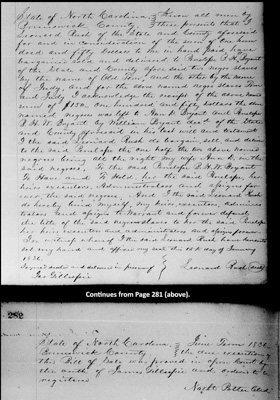 State of North Carolina } Know all men by
Brunswick County } these presents that I
Leonard Rusk of the State and County aforesaid
for and in consideration of the sum of One hun-
dred and fifty Dollars to me in hand paid, have
bargained sold and delivered to Penelope S. H. Bryant
of the State and County aforesaid two negro slaves
by the name of Old Tom, and the other by the name
of Judy, and for the above named negro slaves Tom
and Judy I acknowledge the receipt of the above name
sum of $150. One hundred and fifty dollars the above
named negroes was left to Ann H. Bryant and Penelope
S. H. Bryant by William Bryant Esqr. of the State
and County aforesaid in his last will and testament
I the said Leonard Rusk do bargain, sell and deliver
to the said Penelope the one half the two above named
negroes being all the right my wife Ann H. in the
said negroes. To the said Penelope S. H. Bryant
To Have and To Hold, her the said Penelope, her
heirs executors, Administrators and assigns for-
ever the said negroes. And I the said Leonard Rusk
do hereby bind myself, my heirs, executors, adminis-
trators and assigns to Warrant and forever defend
the title of the said negroes slaves to her the said Penelope
her heirs executors and administrators and assigns forever
In witness whereof I the said Leonard Rusk have hereunto
set my hand and affixed my seal the day of January
1836
Signed sealed and delivered in presence of
Jas Gillespie
Leonard Rusk (seal)
Continues from Page 281 (above).
282
State of North Carolina } June Term 1836
Brunswick County } the due execution of
this Bill of Sale was proved in open Court by
the oath of James Gillespie and ordered to be
registered
Nathl Potter Clk